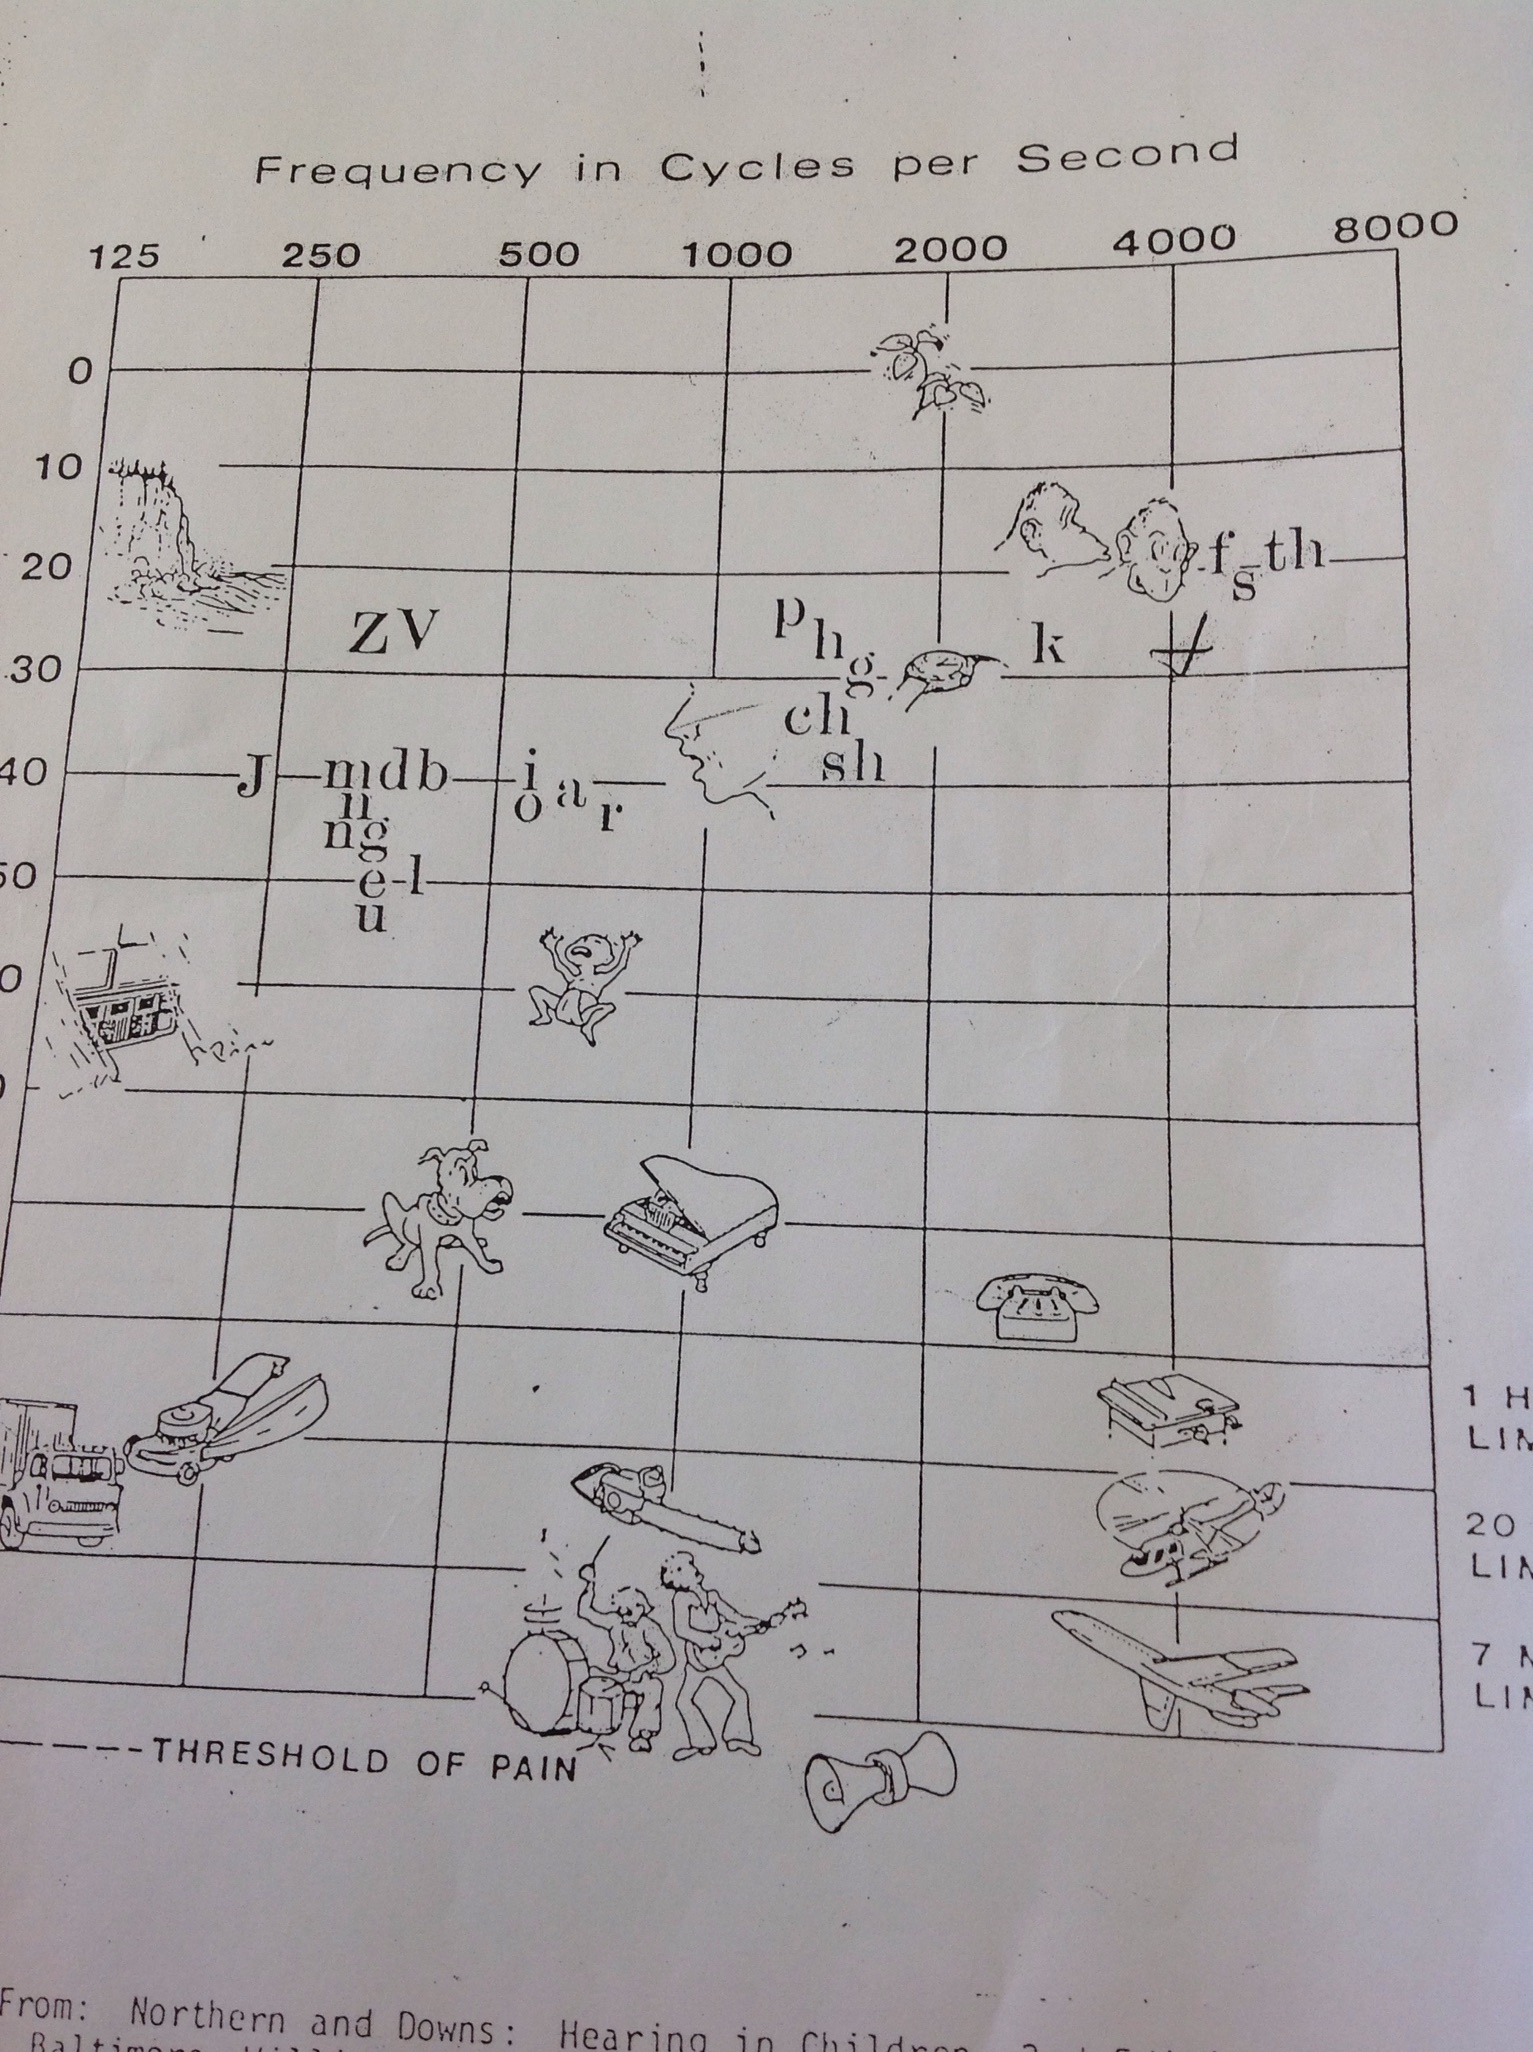 Frequency in Cycles per Second
125 250 500 1000 2000 4000 8000
0
10
20
f s th
z v
p h g
k
30
ch
sh
40
J
m d b
n
ng
i
o
a
r
50
e l
u
1 H
LIM
20
LIM
7 M
LIM
THRESHOLD OF PAIN
From: Northern and Downs: Hearing in Children
Baltimore